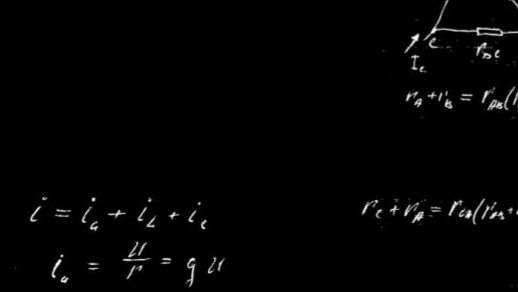 C
r_BC
I_c
r_A + r_B = r_AB(
i = i_a + i_L + i_c
r_C + r_A = r_CA(r_AB +
i_a = u/r = g u